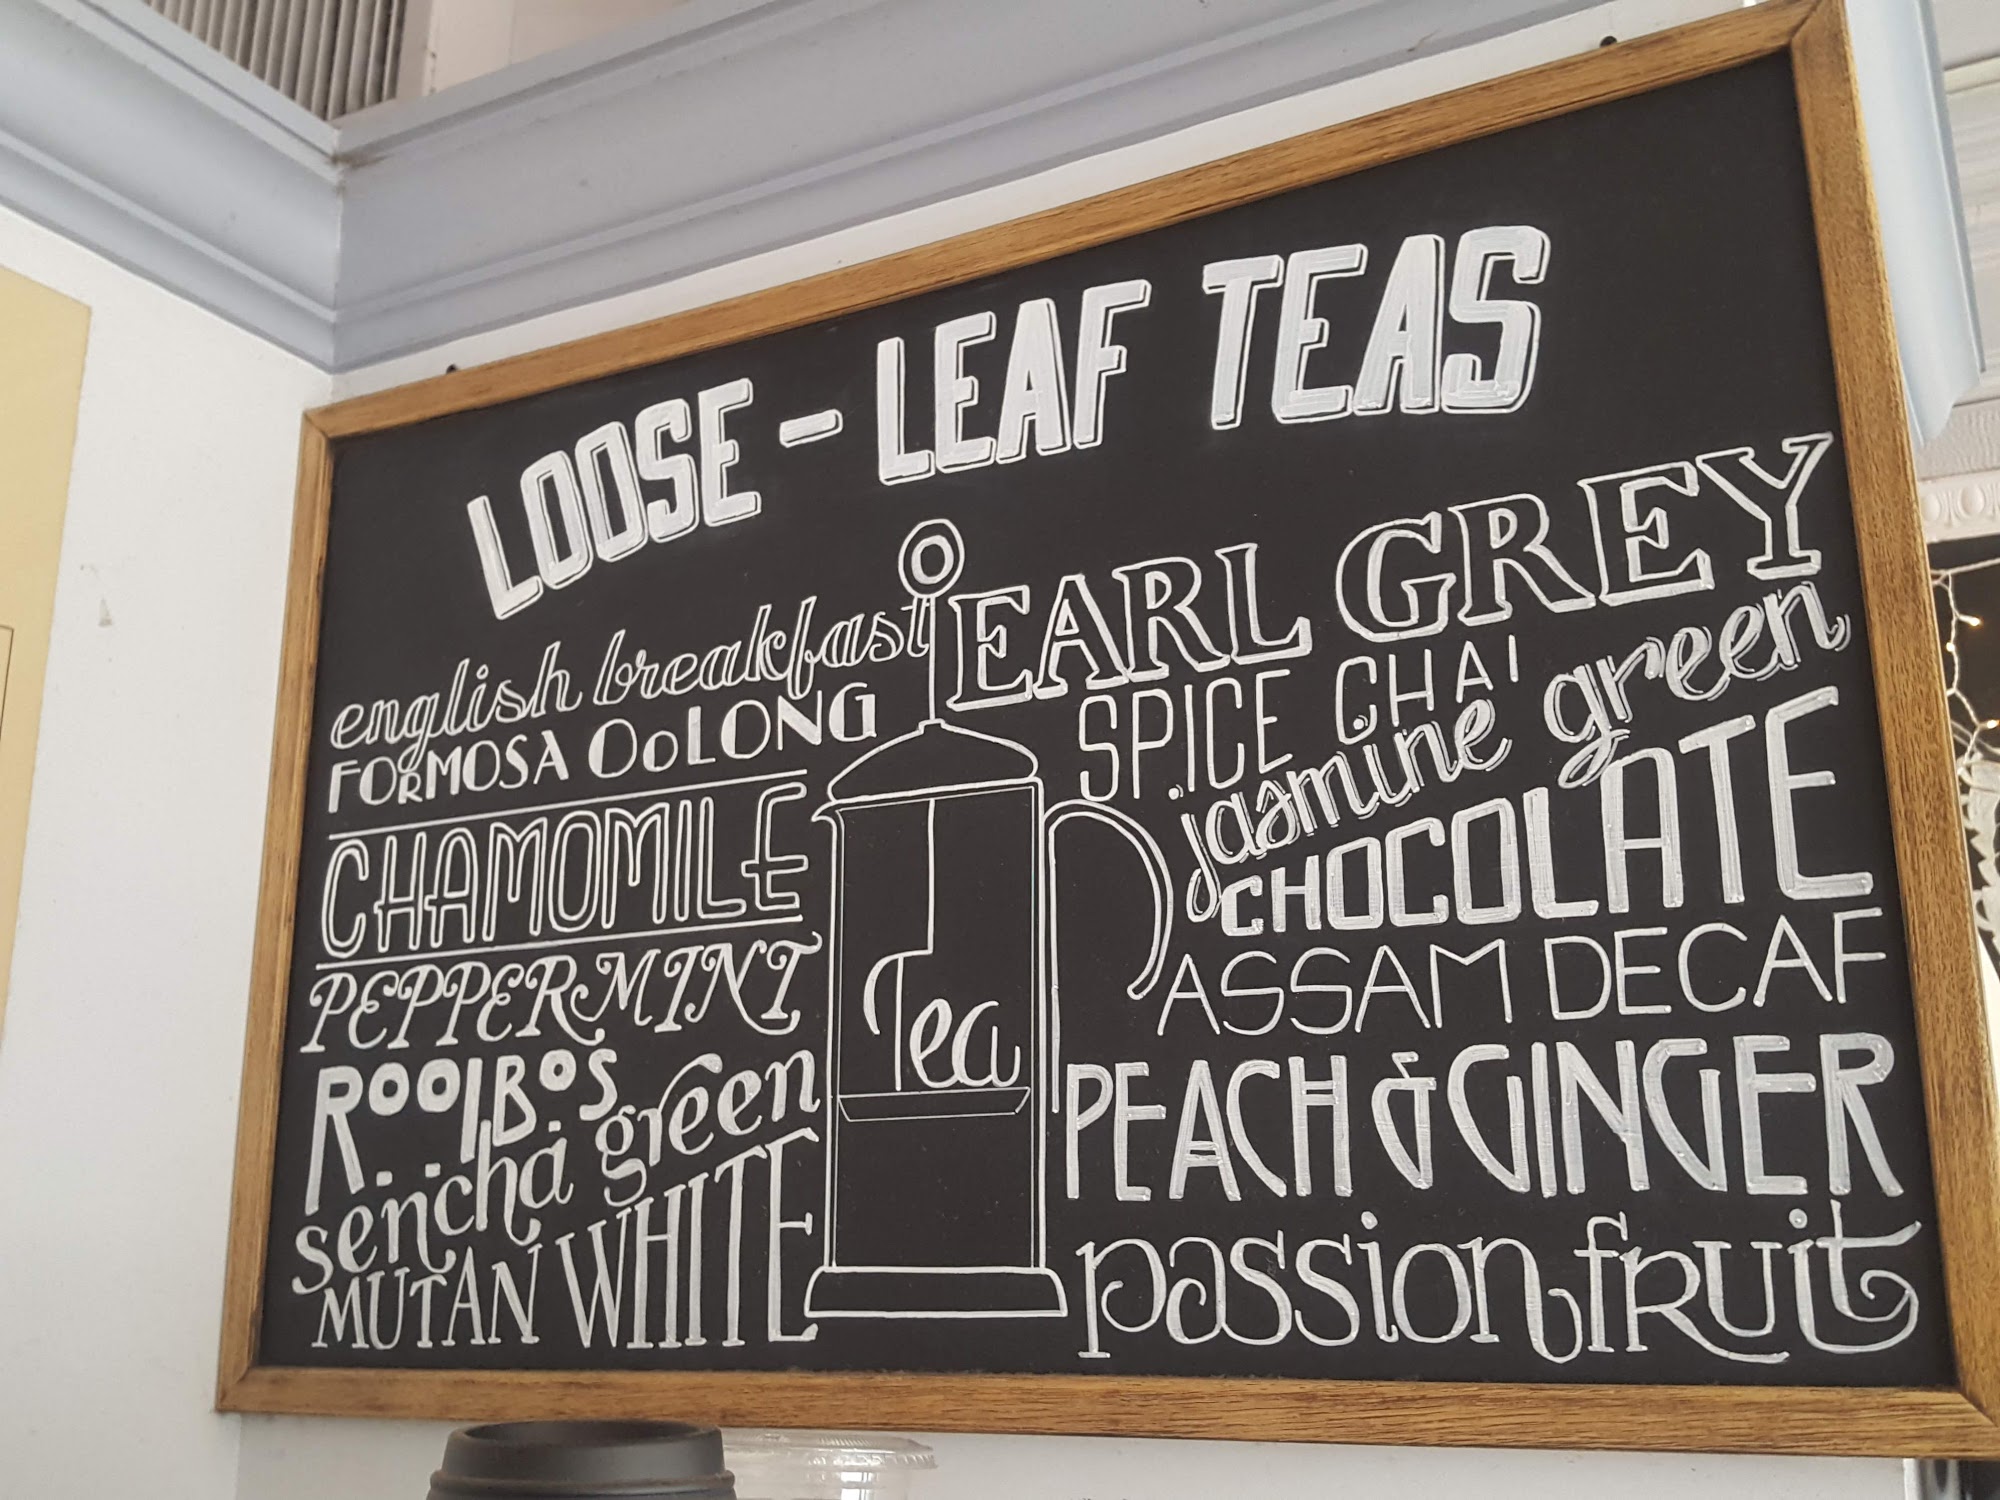 LOOSE - LEAF TEAS
english breakfast
FORMOSA OOLONG
CHAMOMILE
PEPPERMINT
ROOIBOS
sencha green
MUTAN WHITE
Tea
EARL GREY
SPICE CHAI
jasmine green
CHOCOLATE
ASSAM DECAF
PEACH & GINGER
passionfruit